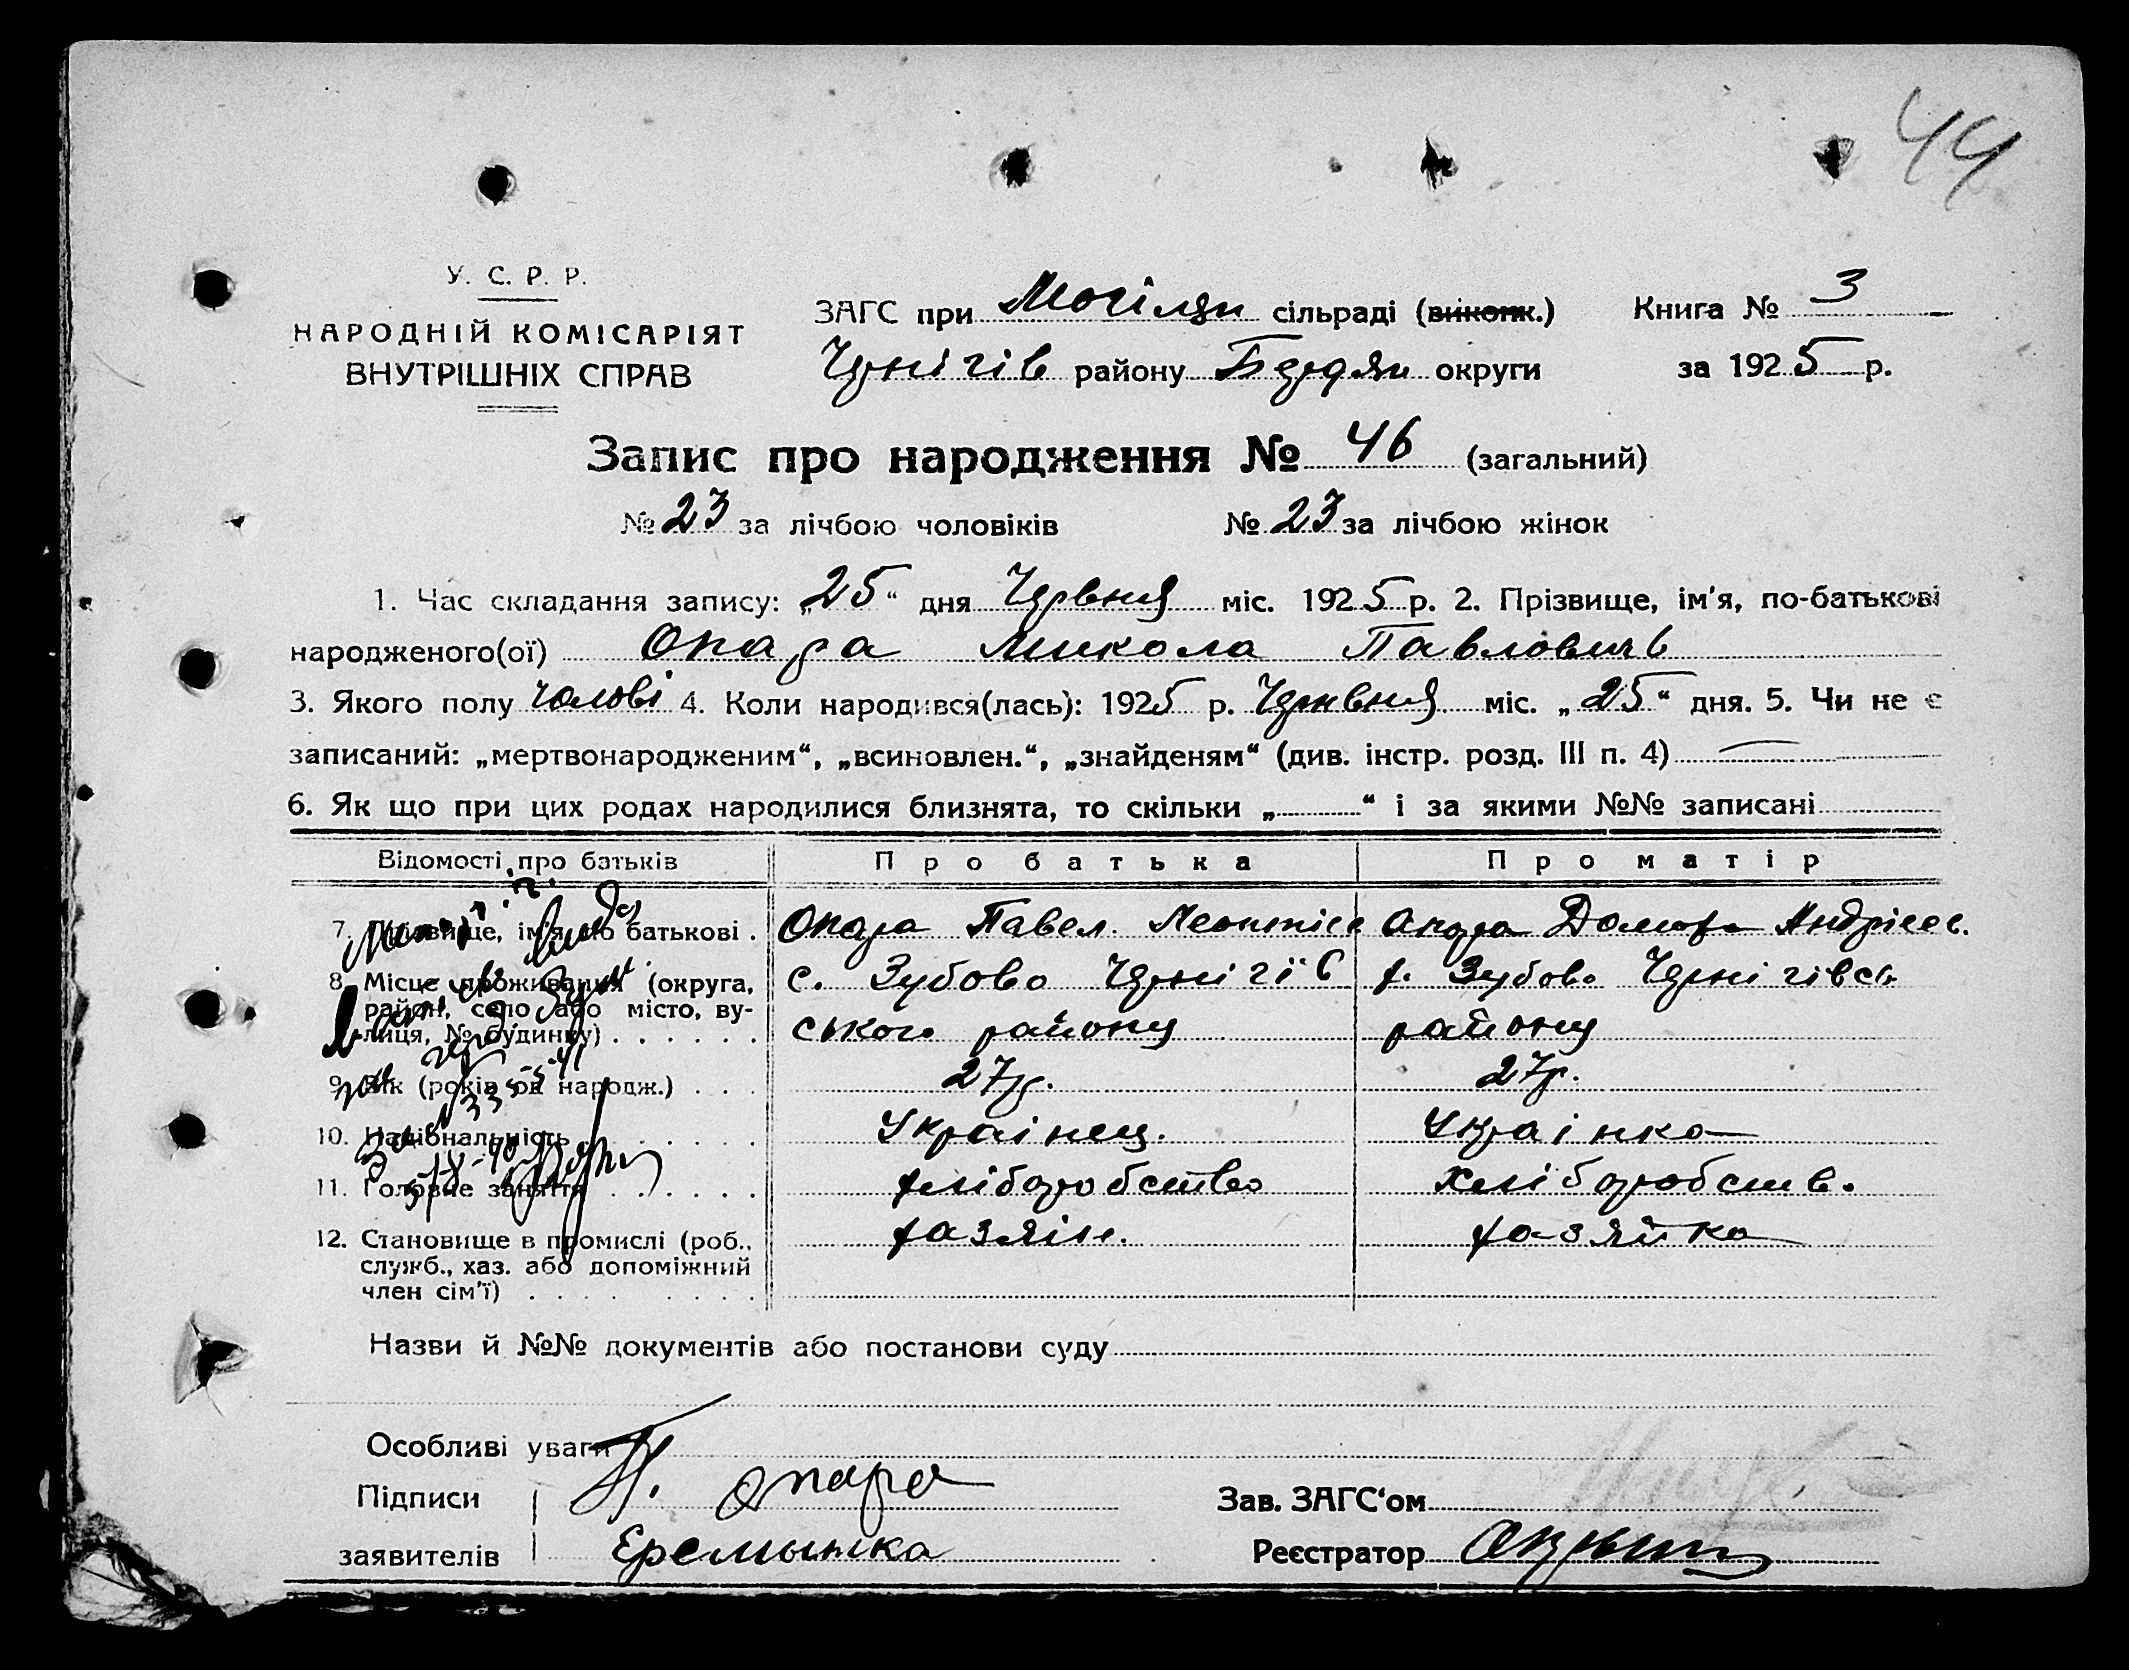 44
У. С. Р. Р.
НАРОДНІЙ КОМІСАРІЯТ
ВНУТРІШНІХ СПРАВ
ЗАГС при Могілян сільраді (виконк.)
Чернігів району Бердян округи
Книга № 3
за 1925 р.
Запис про народження № 46 (загальний)
№ 23 за лічбою чоловіків № 23 за лічбою жінок
1. Час складання запису: „25“ дня Червня міс. 1925 р. 2. Прізвище, ім'я, по-батькові
народженого(ої) Опара Микола Павловичь
3. Якого полу чолові 4. Коли народився(лась): 1925 р. Червня міс. „25“ дня. 5. Чи не є
записаний: „мертвонародженим“, „всиновлен.“, „знайденям“ (див. інстр. розд. III п. 4)
6. Як що при цих родах народилися близнята, то скільки „ “ і за якими №№ записані
Відомості про батьків Про батька Про матір
7. Прізвище, ім'я, по батькові . Опара Павел Леонтіев Опара Домаха Андріев.
8. Місце проживання (округа, район, село або місто, ву-
лиця, № будинку) . . . . . .
с. Зубово Чернігів
ського району
х. Зубово Чернігівсь
району
9. Вік (років од народж.) . . . 27 р. 27 р.
10. Національність . . . . . . Українец. Українка
11. Головне заняття . . . . . . хліборобство хліборобств.
12. Становище в промислі (роб., служб., хаз. або допоміжний
член сім'ї) . . . . . . . .
хазяін. хазяйка
Назви й №№ документів або постанови суду
Особливі уваги
Підписи П. Опара
заявителів Еремынка
Зав. ЗАГС'ом
Реєстратор